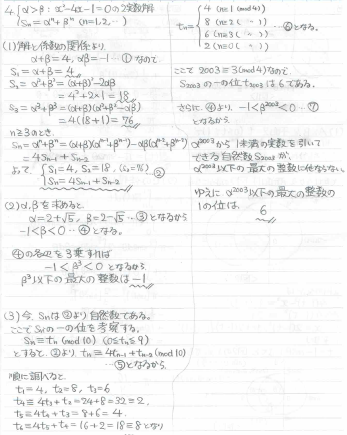 4. α>β : x²-4x-1=0の2実数解
Sn=αⁿ+βⁿ (n=1,2,…)
(1) 解と係数の関係より、
α+β=4, αβ=-1 …① なので
S₁=α+β=4
S₂=α²+β²=(α+β)²-2αβ
=4²+2×1=18
S₃=α³+β³=(α+β)(α²+β²-αβ)
=4(18+1)=76
n≧3のとき、
Sn=αⁿ+βⁿ=(α+β)(αⁿ⁻¹+βⁿ⁻¹)-αβ(αⁿ⁻²+βⁿ⁻²)
=4Sn-1+Sn-2
よって、{S₁=4, S₂=18, (S₃=76)
Sn=4Sn-1+Sn-2 ②
(2) α,βを求めると
α=2+√5, β=2-√5 …③となるから
-1<β<0 …④となる。
④の各辺を3乗すれば
-1<β³<0 となるから
β³以下の最大の整数は -1
(3) 今、Snは②より自然数である。
ここでSnの一の位を考察する。
Sn≡tn (mod 10) (0≦tn≦9)
とすると、②より、tn≡4tn-1+tn-2 (mod 10)
…⑤となるから、
順に調べると、
t₁=4, t₂=8, t₃=6
t₄≡4t₃+t₂=24+8=32≡2,
t₅≡4t₄+t₃=8+6≡4.
t₆≡4t₅+t₄=16+2=18≡8となり
tn={4 (n≡1 (mod 4))
8 (n≡2 ( 〃 ))
6 (n≡3 ( 〃 ))
2 (n≡0 ( 〃 )) …⑥となる。
ここで 2003≡3(mod 4)なので、
S₂₀₀₃の一の位t₂₀₀₃は6である。
さらに④より、-1<β²⁰⁰³<0 …⑦
となるから、
α²⁰⁰³から1未満の実数を引いて
できる自然数S₂₀₀₃が、
α²⁰⁰³以下の最大の整数に他ならない。
ゆえにα²⁰⁰³以下の最大の整数の
1の位は、
6